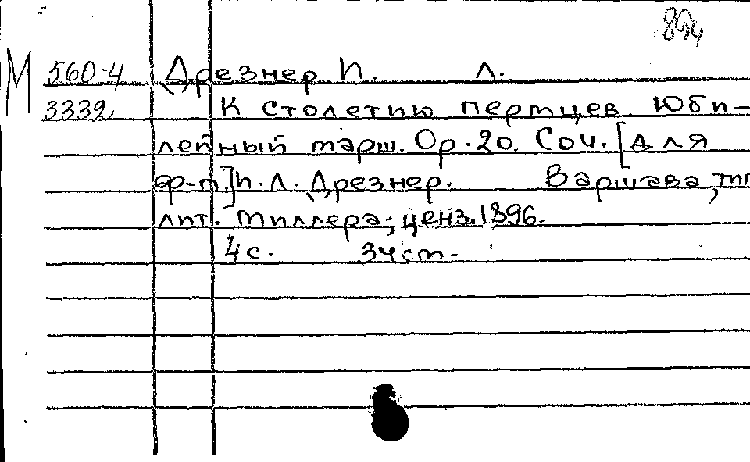 894
М 560-4 Дрезнер И. Л.
3339 К столетию пертцев. Юби-
лейный марш. Ор. 20. Соч. [для
ф-п.] И. Л. Дрезнер. Варшава, тип
лит. Миллера; ценз. 1896.
4 с. 34 см.